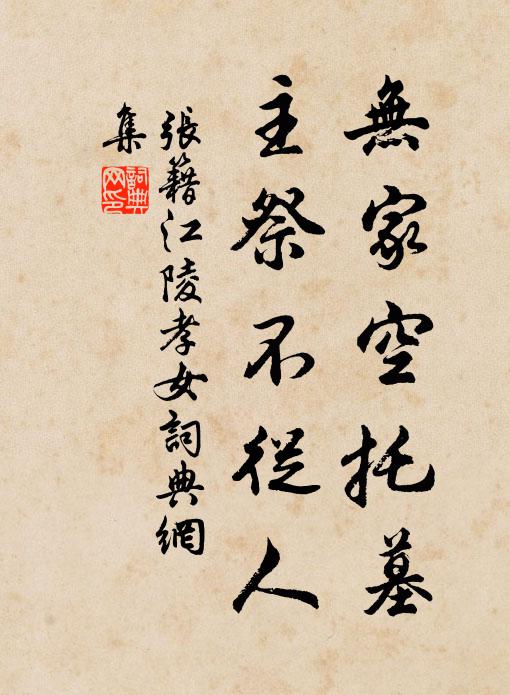 無家空托墓
主祭不從人
張籍江陵孝女詞典網
集
詞典
网印